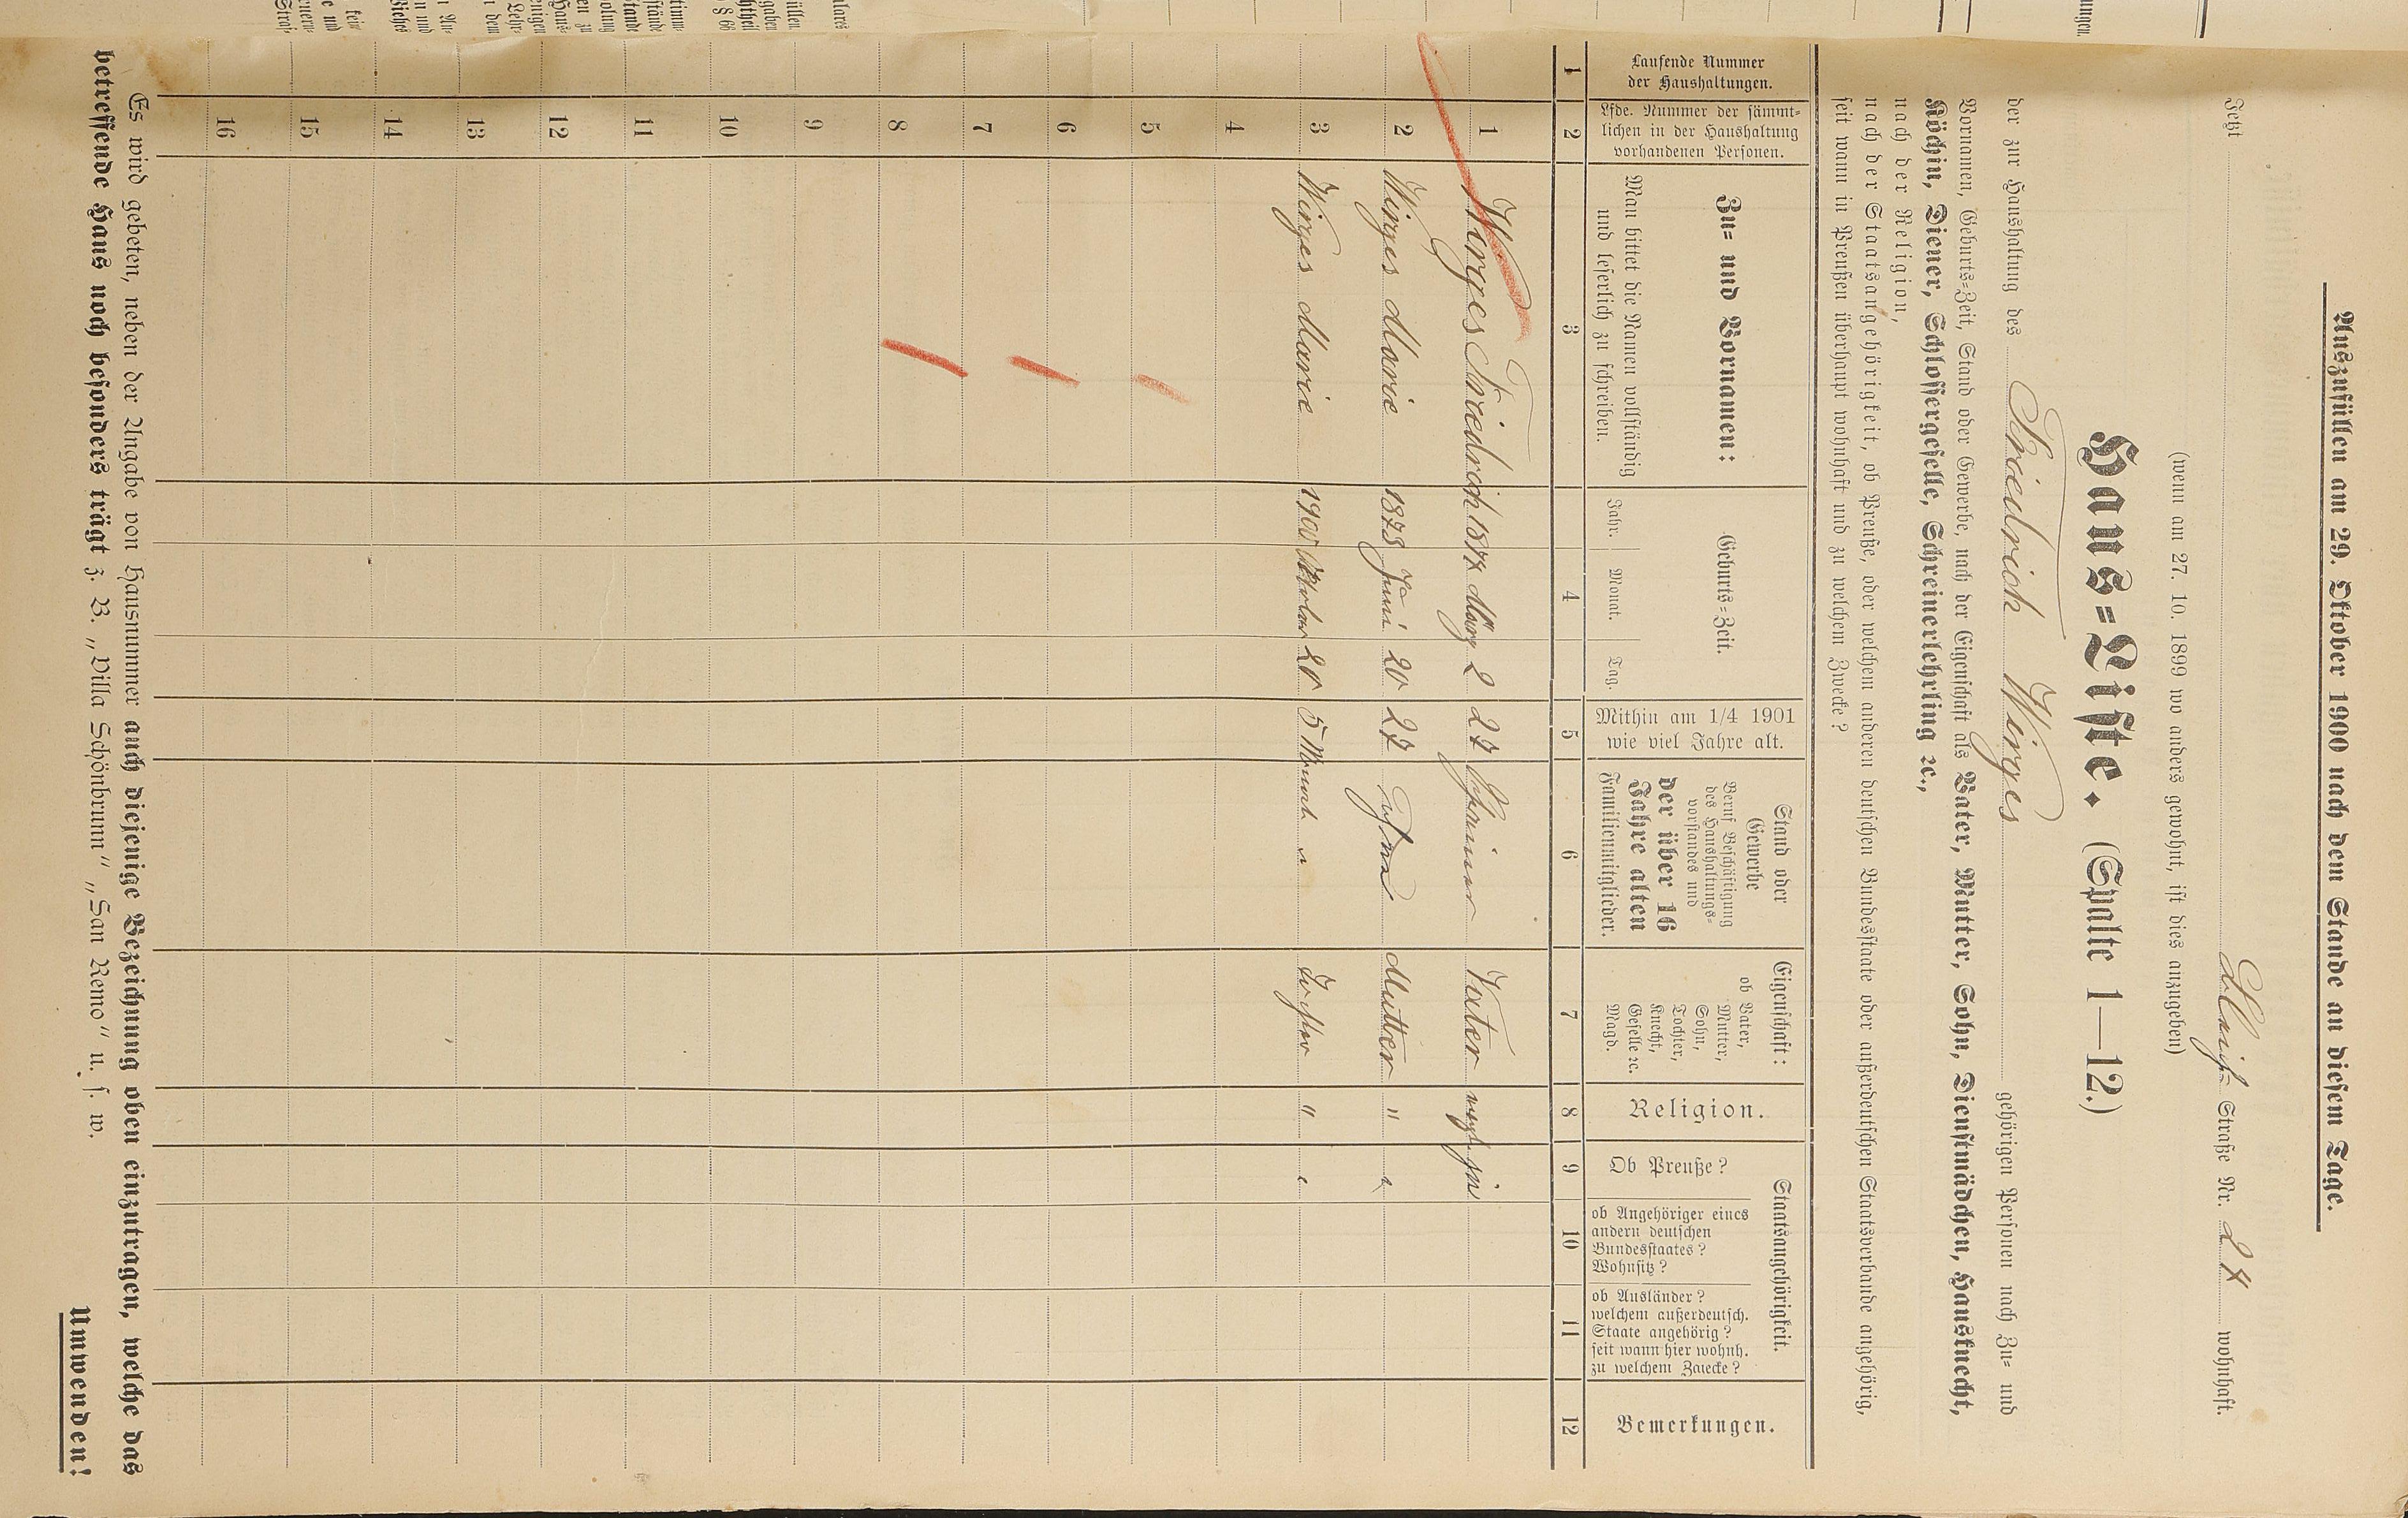 Auszufüllen am 29. Oktober 1900 nach dem Stande an diesem Tage.
Jetzt Straße Nr. 24 wohnhaft.
(wenn am 27. 10. 1899 wo anders gewohnt, ist dies anzugeben)
Haus=Liste. (Spalte 1—12.)
der zur Haushaltung des Friedrich Wirges gehörigen Personen nach Zu= und
Vornamen, Geburts=Zeit, Stand oder Gewerbe, nach der Eigenschaft als Vater, Mutter, Sohn, Dienstmädchen, Hausknecht,
Köchin, Diener, Schlossergeselle, Schreinerlehrling ꝛc.,
nach der Religion,
nach der Staatsangehörigkeit, ob Preuße, oder welchem anderen deutschen Bundesstaate oder außerdeutschen Staatsverbande angehörig,
seit wann in Preußen überhaupt wohnhaft und zu welchem Zwecke?
Laufende Nummer
der Haushaltungen.
Lfde. Nummer der sämmt=
lichen in der Haushaltung
vorhandenen Personen.
Zu= und Vornamen:
Man bittet die Namen vollständig
und leserlich zu schreiben.
Geburts=Zeit.
Jahr. Monat. Tag.
Mithin am 1/4 1901
wie viel Jahre alt.
Stand oder
Gewerbe
Beruf Beschäftigung
des Haushaltungs=
vorstandes und
der über 16
Jahre alten
Familienmitglieder.
Eigenschaft:
ob Vater,
Mutter,
Sohn,
Tochter,
Knecht,
Geselle ꝛc.
Magd.
Religion.
Staatsangehörigkeit.
Ob Preuße?
ob Angehöriger eines
andern deutschen
Bundesstaates?
Wohnsitz?
ob Ausländer?
welchem außerdeutsch.
Staate angehörig?
seit wann hier wohnh.
zu welchem Zwecke?
Bemerkungen.
1 2 3 4 5 6 7 8 9 10 11 12
1 Wirges Friedrich 2 27 Schreiner Vater ja
2 Wirges Marie 1873 Juni 20 27 Mutter "
3 Wirges Marie 1900 Oktober 20 5 Monat Tochter "
4
5
6
7
8
9
10
11
12
13
14
15
16
Es wird gebeten, neben der Angabe von Hausnummer auch diejenige Bezeichnung oben einzutragen, welche das
betreffende Haus noch besonders trägt z. B. „Villa Schönbrunn“ „San Remo“ u. s. w.
Umwenden!